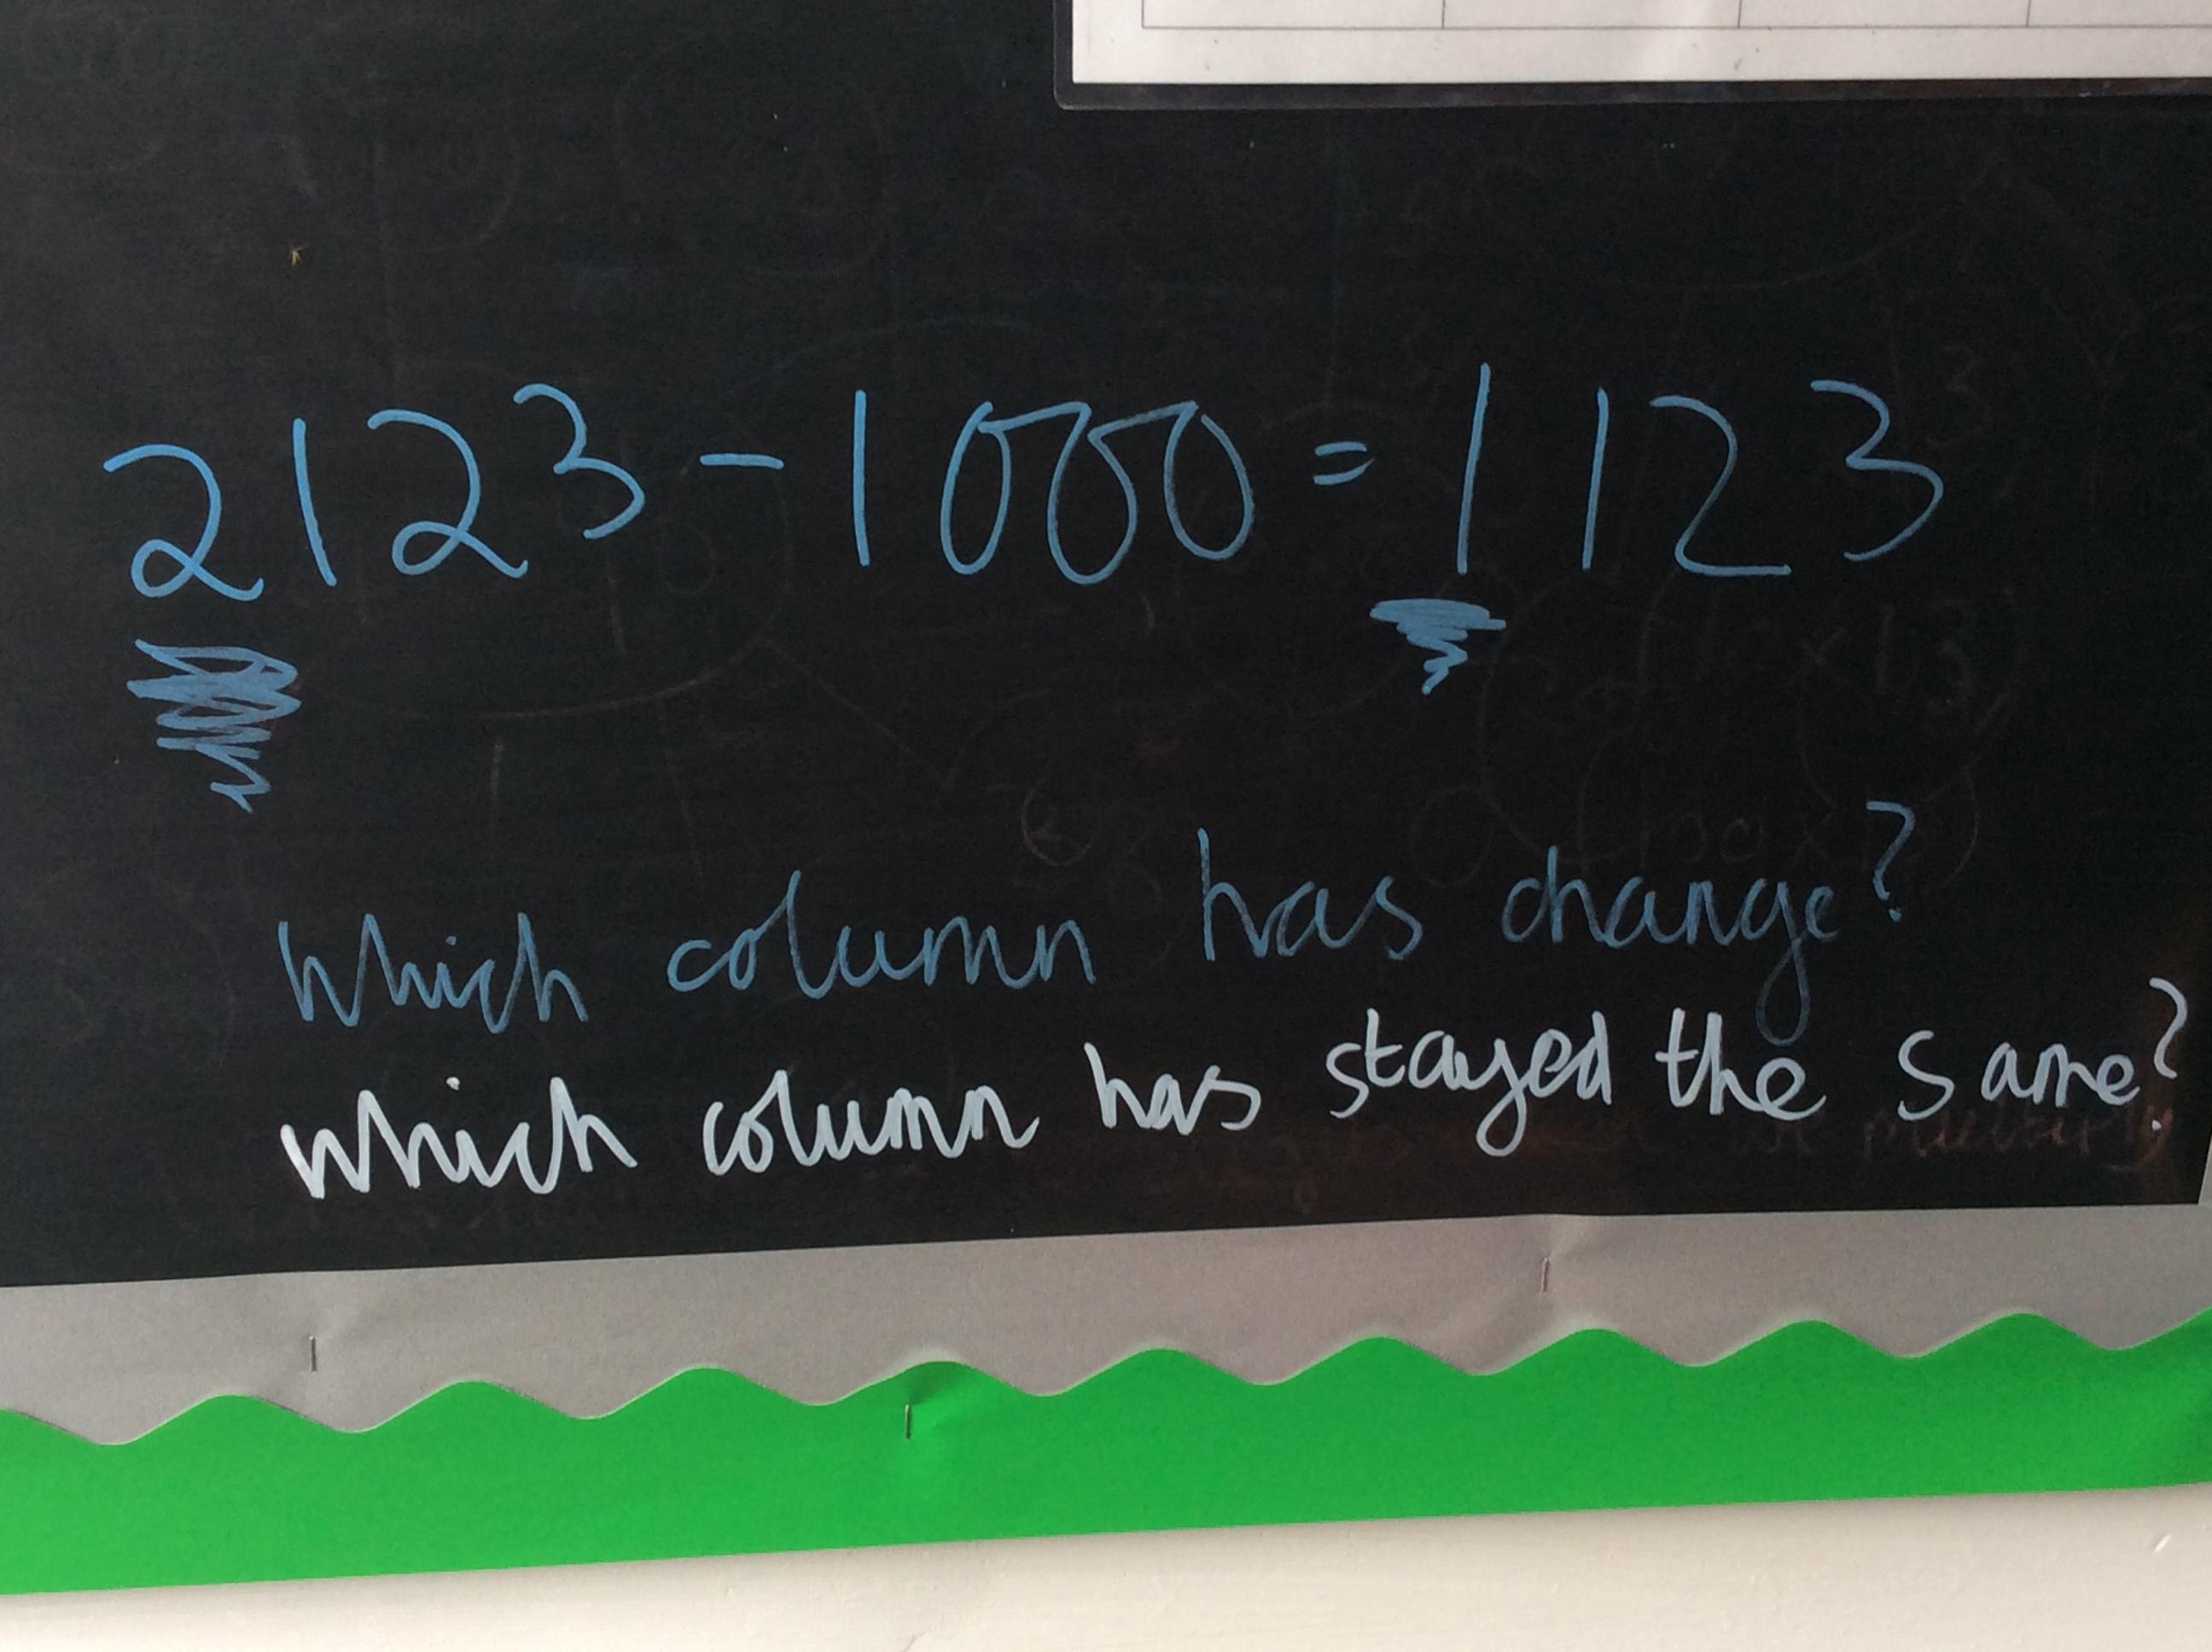 2123 - 1000 = 1123
Which column has change?
which column has stayed the same?